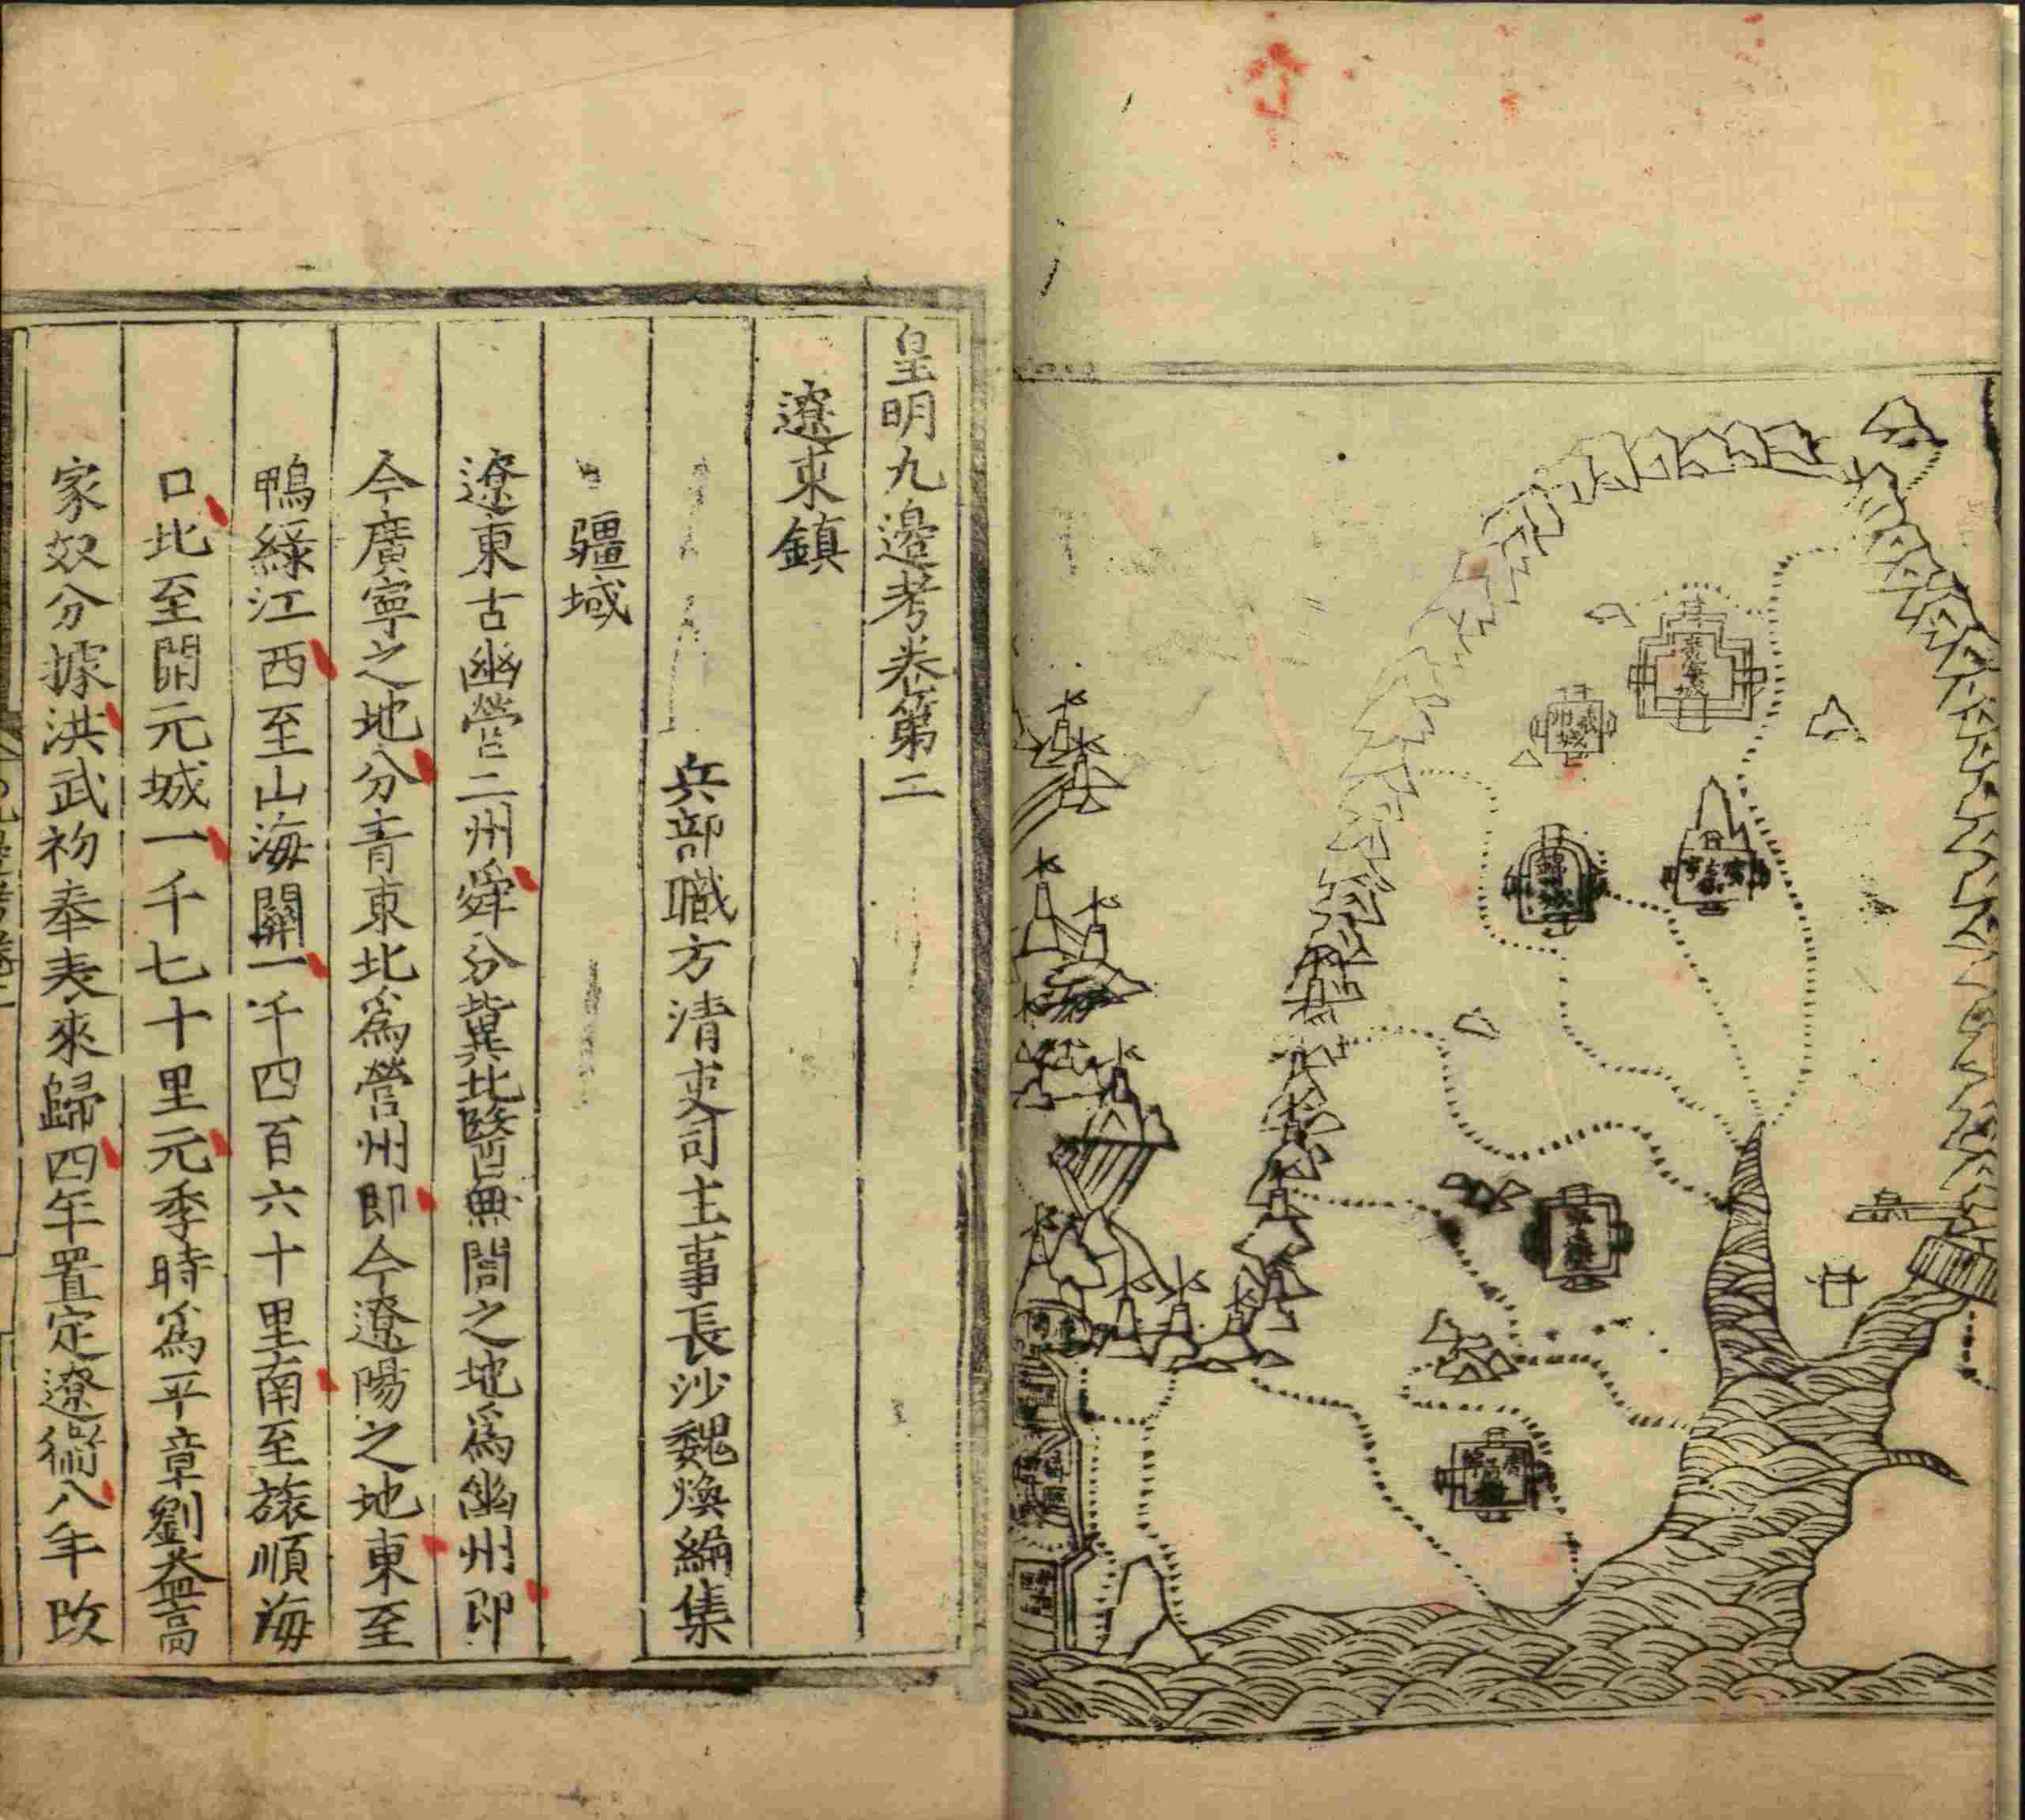 皇明九邊考卷第二
遼東鎮
兵部職方清吏司主事長沙魏煥編集
疆域
遼東古幽營二州舜分冀北醫無閭之地爲幽州即
今廣寧之地分青東北爲營州即今遼陽之地東至
鴨綠江西至山海關一千四百六十里南至旅順海
口北至開元城一千七十里元季時爲平章劉益高
家奴分據洪武初奉表來歸四年置定遼衛八年改